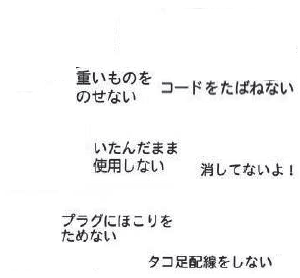 重いものを
のせない
コードをたばねない
いたんだまま
使用しない
消してないよ!
プラグにほこりを
ためない
タコ足配線をしない